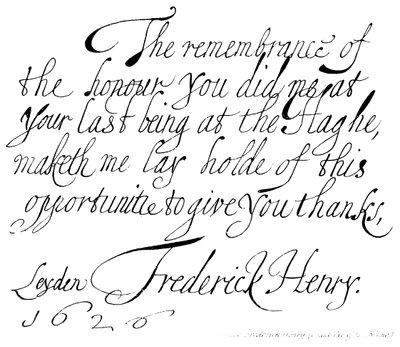 The remembrance of
the honour you did me at
your last being at the Haghe,
maketh me lay holde of this
opportunitie to give you thanks,
Leyden Frederick Henry.
1626